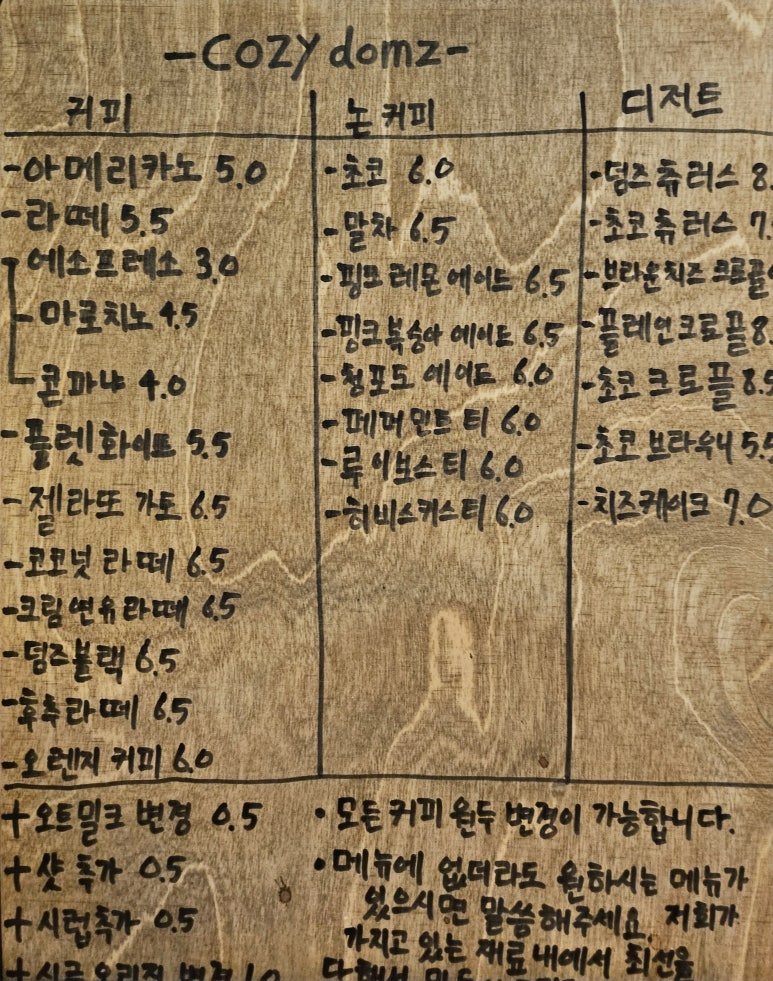 -COZY domz-
커피
-아메리카노 5.0
-라떼 5.5
-에소프레소 3.0
-마로치노 4.5
-콘파냐 4.0
-플렛화이트 5.5
-젤라또 가토 6.5
-코코넛 라떼 6.5
-크림연유라떼 6.5
-덤즈블랙 6.5
-후추라떼 6.5
-오렌지 커피 6.0
논커피
-초코 6.0
-말차 6.5
-핑크레몬에이드 6.5
-핑크복숭아 에이드 6.5
-청포도 에이드 6.0
-페퍼민트 티 6.0
-루이보스티 6.0
-히비스커스티 6.0
디저트
-덤즈츄러스 8.
-초코츄러스 7.
-브라운치즈 크로플
-플레인크로플 8.
-초코 크로플 8.5
-초코 브라우니 5.5
-치즈케이크 7.0
+오트밀크 변경 0.5
+샷 추가 0.5
+시럽추가 0.5
+싱글오리진 변경 1.0
• 모든 커피 원두 변경이 가능합니다.
• 메뉴에 없더라도 원하시는 메뉴가
있으시면 말씀해주세요. 저희가
가지고 있는 재료 내에서 최선을